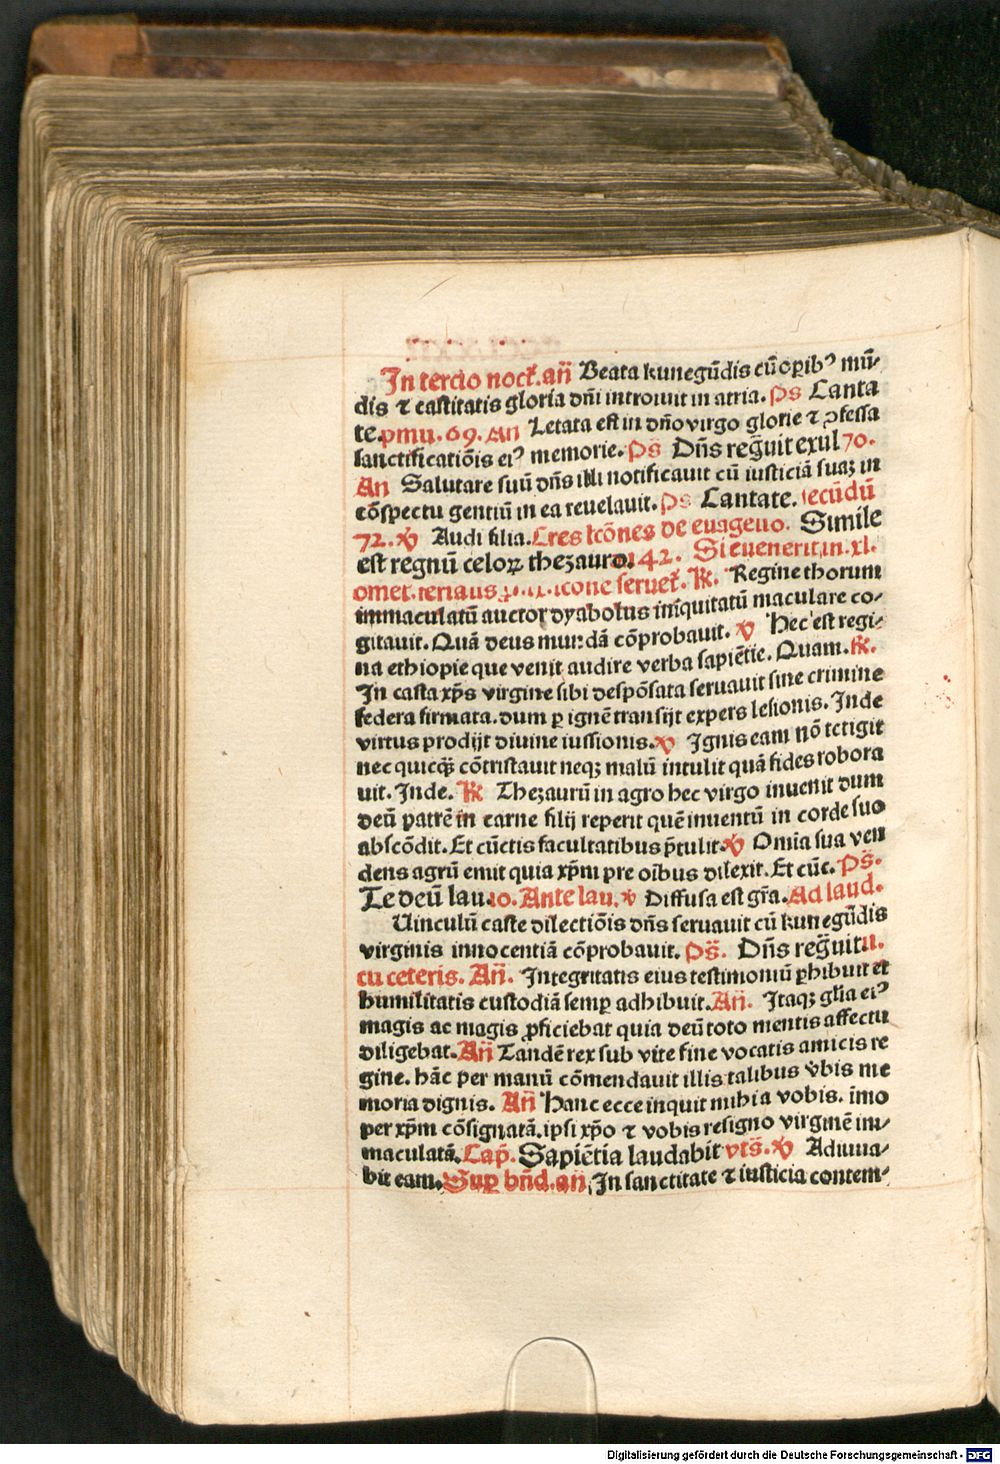 In tercio noct̄. an̄ Beata kunegūdis cū oꝑibꝰ mū-
dis ⁊ castitatis gloria dn̄i introiuit in atria. Ps Canta
te. pmu. 69. An Letata est in dn̄o virgo glorie ⁊ ꝓfessa
sanctificatiōis eiꝰ memorie. Ps̄ Dn̄s regͣuit exul 70.
An Salutare suū dn̄s illi notificauit cū iusticiā suaꝫ in
cōspectu gentiū in ea reuelauit. Ps Cantate. secūdū
72. ℣ Audi filia. Tres lcōnes de euāgelio. Simile
est regnū celoꝝ thezauro. 142. Si euenerit in. xl.
omet. ferialis
immaculatū auctor dyabolus iniquitatū maculare co-
gitauit. Quā deus mundā cōprobauit. ℣ Hec est regi-
na ethiopie que venit audire verba sapiētie. Quam. ℟.
In casta xp̄s virgine sibi despōsata seruauit sine crimine
federa firmata. dum ꝑ ignē transijt expers lesionis. Inde
virtus prodijt diuine iussionis. ℣ Ignis eam nō tetigit
nec quicq̄ȝ cōtristauit neqȝ malū intulit quā fides robora
uit. Inde. ℟ Thezaurū in agro hec virgo inuenit dum
deū patrē in carne filij reperit quē inuentū in corde suo
abscōdit. Et cūctis facultatibus p̄tulit. ℣ Omīa sua ven
dens agrū emit quia xp̄m pre oībus dilexit. Et cūc. Ps̄.
Te deū lau. 10. Ante lau. ℣ Diffusa est gr̄a. Ad laud.
Uinculū caste dilectiōis dn̄s seruauit cū kunegūdis
virginis innocentiā cōprobauit. Ps̄. Dn̄s regͣuit u.
cu ceteris. An̄. Integritatis eius testimoniū ꝑhibuit et
humilitatis custodiā semꝑ adhibuit. An̄. Itaqȝ gl̄ia eiꝰ
magis ac magis ꝓficiebat quia deū toto mentis affectu
diligebat. An̄ Tandē rex sub vite fine vocatis amicis re
gine. hāc per manū cōmendauit illis talibus v̄bis me
moria dignis. An̄ Hanc ecce inquit mihi a vobis. īmo
per xp̄m cōsignatā. ipsi xp̄o ⁊ vobis resigno virginē im-
maculatā. Cap̄. Sapiētia laudabit vts̄. ℣ Adiuua-
bit eam. Suꝑ bn̄d. an̄ In sanctitate ⁊ iusticia contem-
Digitalisierung gefördert durch die Deutsche Forschungsgemeinschaft - DFG